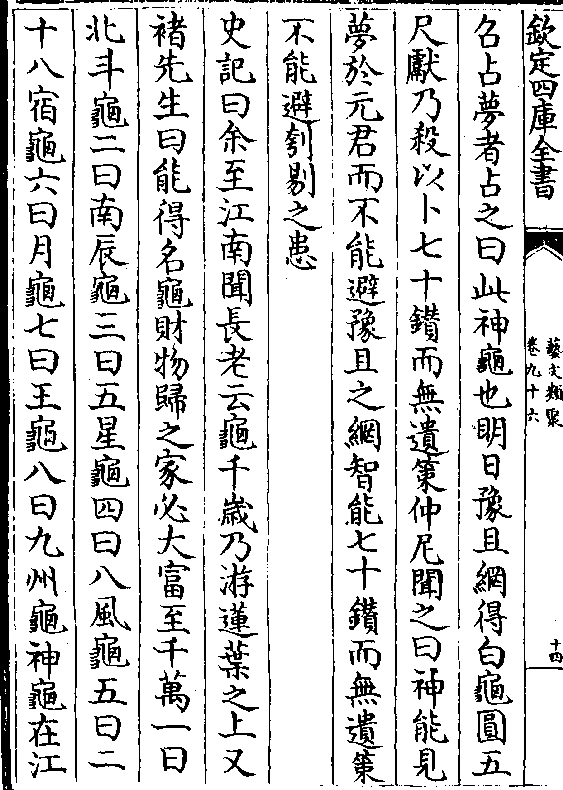 欽定四庫全書
藝文類聚
卷九十六
十四
名占夢者占之曰此神龜也明日豫且網得白龜圓五
尺獻乃殺以卜七十鑚而無遺策仲尼聞之曰神能見
夢於元君而不能避豫且之網智能七十鑚而無遺策
不能避刳剔之患
史記曰余至江南聞長老云龜千歲乃游蓮葉之上又
禇先生曰能得名龜財物歸之家必大富至千萬一曰
北斗龜二曰南辰龜三曰五星龜四曰八風龜五曰二
十八宿龜六曰月龜七曰王龜八曰九州龜神龜在江